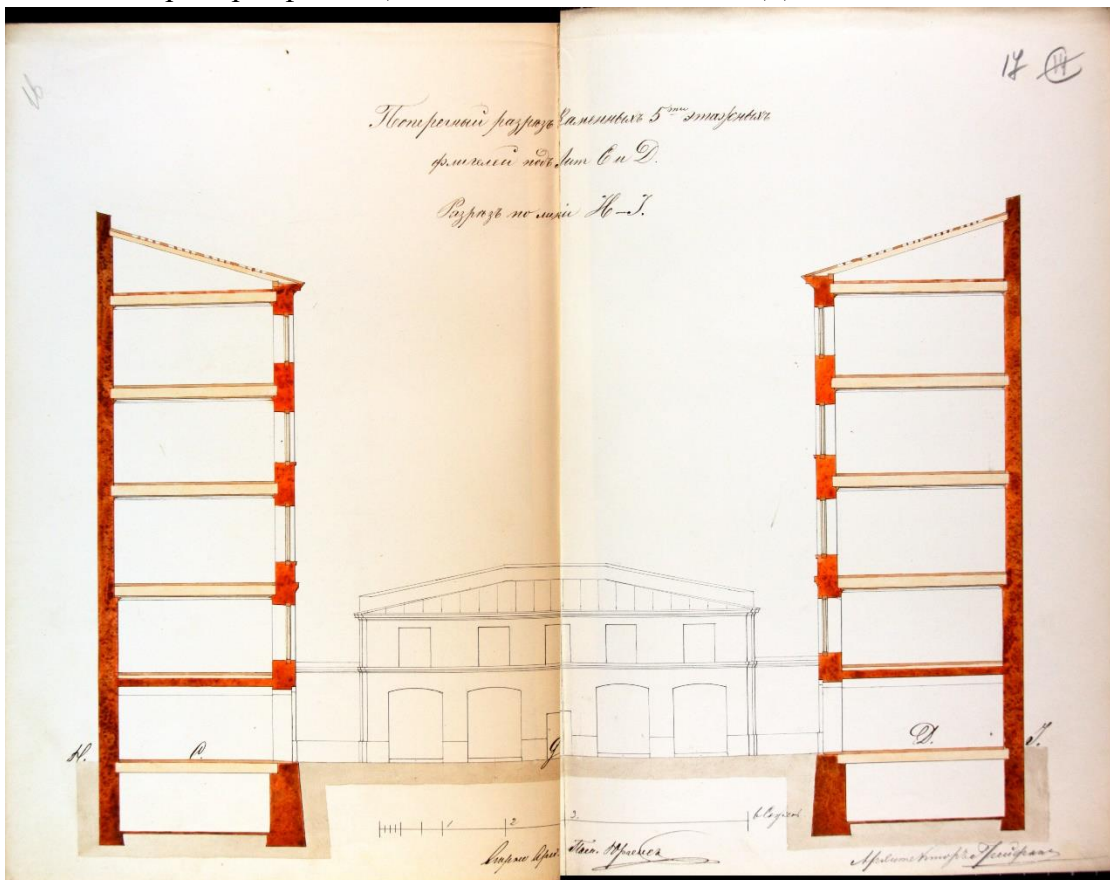 16
17
Поперечный разрѣзъ каменныхъ 5ти этажныхъ
флигелей подъ лит С и D.
Разрѣзъ по линіи Н–J.
Н. С. G D. J.
1 2 3. 6 Сажень
Архитекторъ